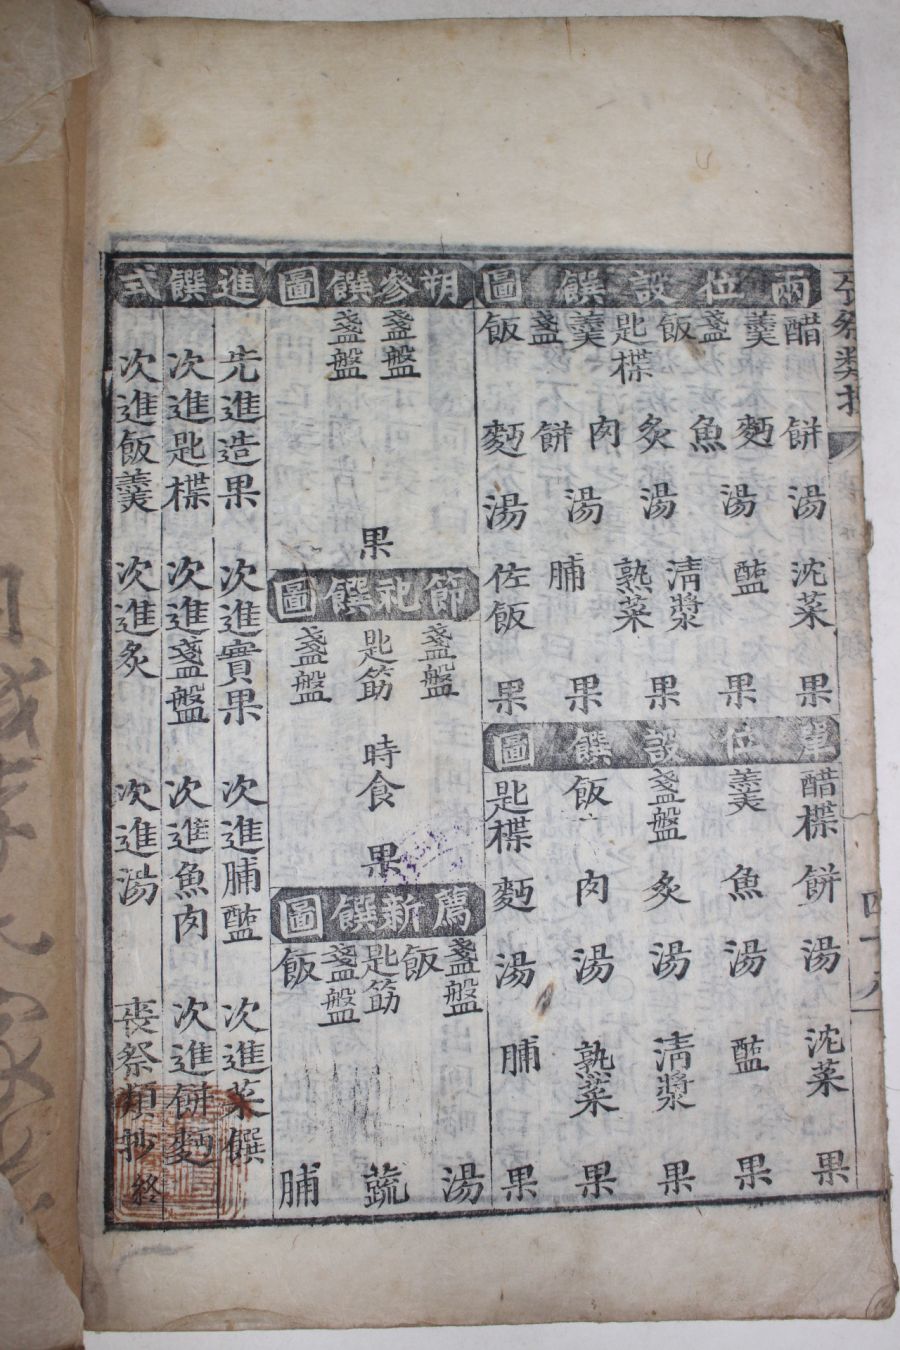 兩位設饌圖
醋羹盞飯匙楪羹盞飯
餅麪魚炙肉餅麪
湯湯湯湯湯
沈菜醢清漿熟菜脯佐飯
果果果果果
單位設饌圖
醋楪羹盞盤飯匙楪
餅魚炙肉麪
湯湯湯湯湯
沈菜醢清漿熟菜脯
果果果果果
朔參饌圖
盞盤盞盤
果
節祀饌圖
盞盤匙筯盞盤
時食
果
薦新饌圖
盞盤飯匙筯盞盤飯
湯蔬脯
進饌式
先進造果 次進實果 次進脯醢 次進菜饌
次進匙楪 次進盞盤 次進魚肉 次進餅麪
次進飯羹 次進炙 次進湯
喪祭類抄終